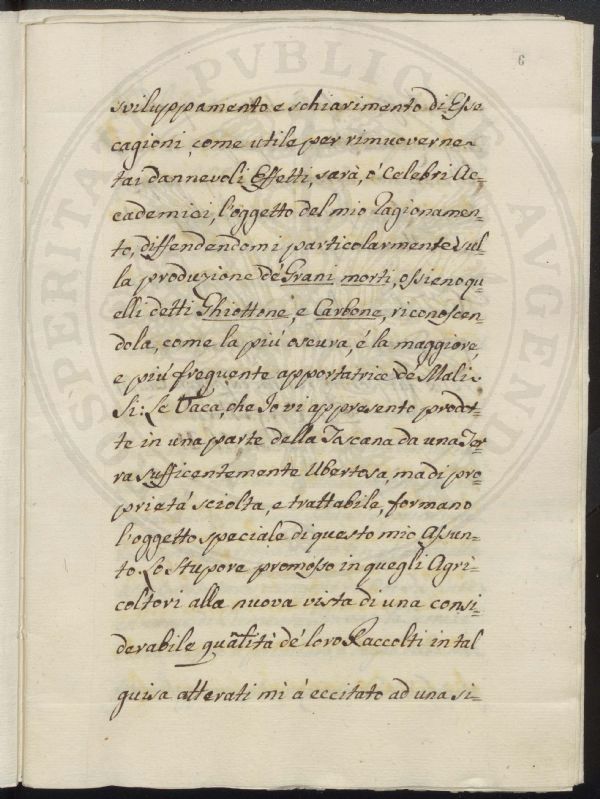 6
sviluppamento e schiarimento di Esse
cagioni, come utile per rimuoverne
tai dannevoli Effetti, sarà, ò Celebri Ac=
cademici, l'oggetto del mio Ragionamen=
to, diffendendomi particolarmente sul=
la produzione de' Grani morti, ossieno qu=
elli detti Ghiottone, e Carbone, riconoscen=
dola, come la più oscura, é la maggiore,
e più frequente apportatrice de Mali.
Si: Le che Io vi appresento prodot=
te in una parte della Toscana da una Ter=
ra sufficentemente Ubertosa, ma di pro=
prietà sciolta, e trattabile, formano
l'oggetto speciale di questo mio Assun=
to. Lo Stupore promosso in quegli Agri=
coltori alla nuova vista di una consi=
derabile quãlità de' loro Raccolti in tal
guisa atterati mi à eccitato ad una si=
PROSPERITATI PVBLICAE AVGENDAE